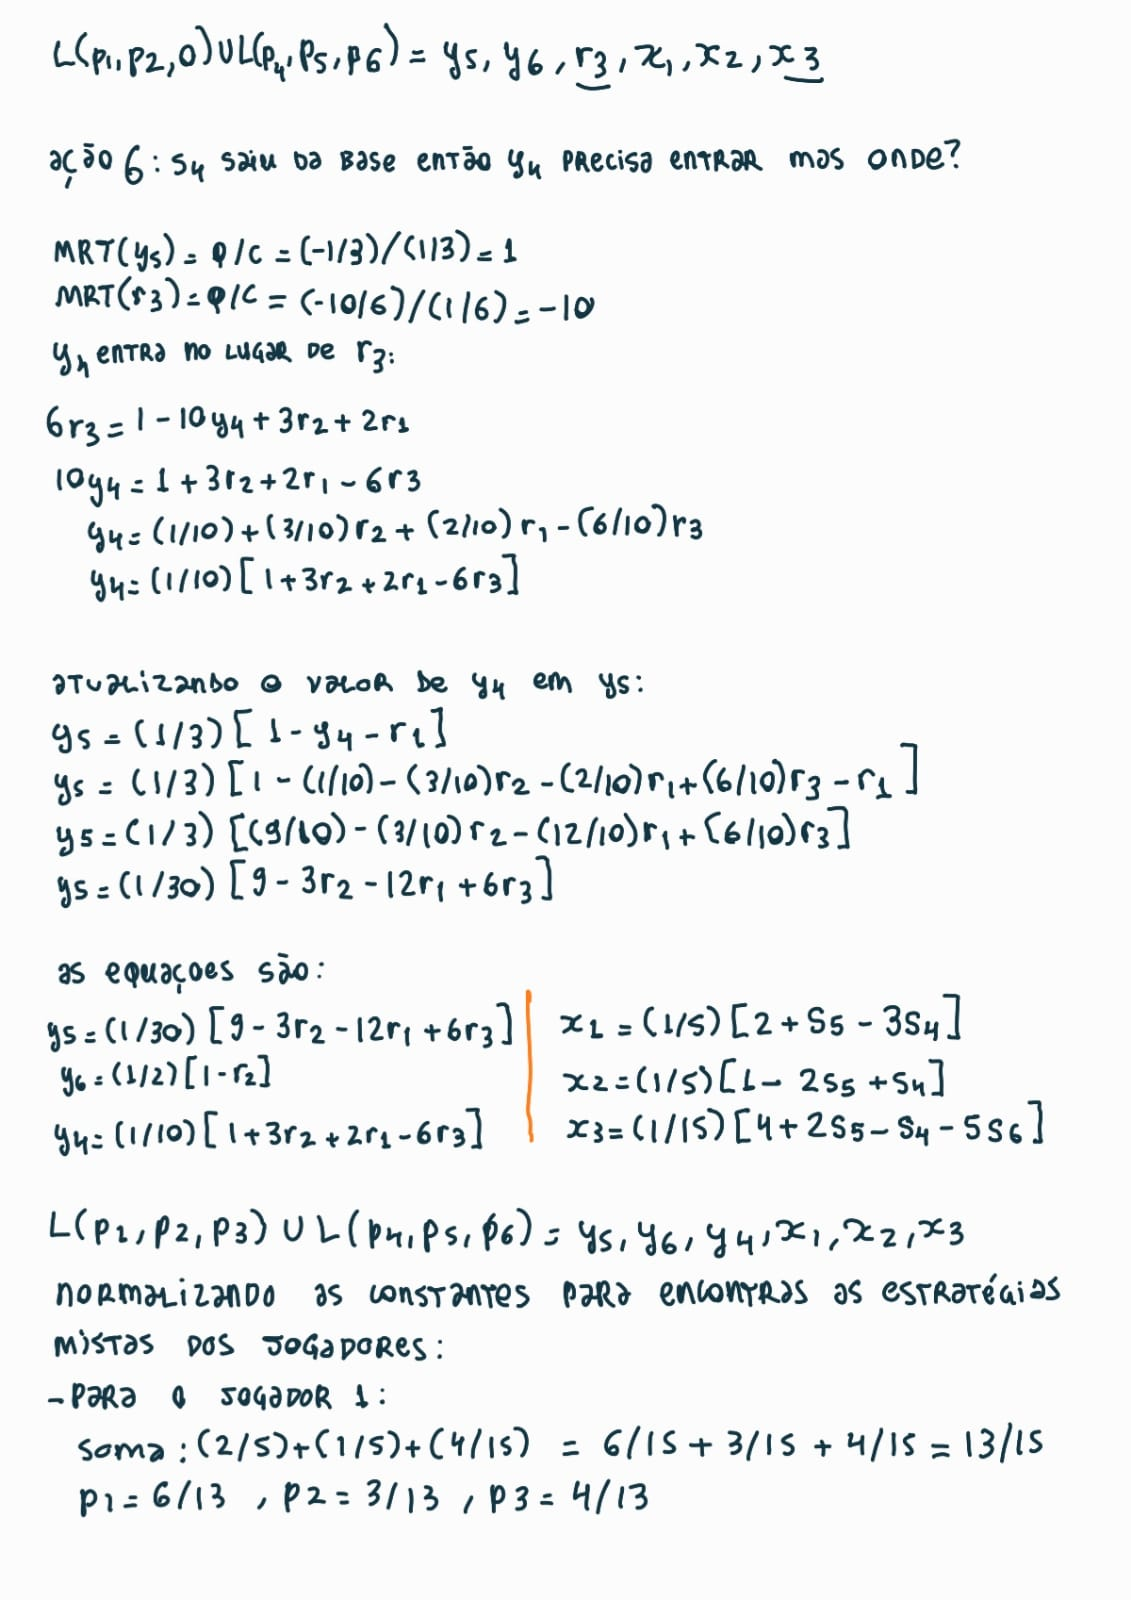 L(p1,p2,0)UL(p4,p5,p6) = y5, y6, r3, x1, x2, x3
ação 6: s4 saiu da base então y4 precisa entrar mas onde?
MRT(y5) = q/c = (-1/3)/(1/3) = 1
MRT(r3) = q/c = (-10/6)/(1/6) = -10
y4 entra no lugar de r3:
6r3 = 1 - 10y4 + 3r2 + 2r1
10y4 = 1 + 3r2 + 2r1 - 6r3
y4 = (1/10) + (3/10)r2 + (2/10)r1 - (6/10)r3
y4 = (1/10)[1 + 3r2 + 2r1 - 6r3]
atualizando o valor de y4 em y5:
y5 = (1/3)[1 - y4 - r1]
y5 = (1/3)[1 - (1/10) - (3/10)r2 - (2/10)r1 + (6/10)r3 - r1]
y5 = (1/3)[(9/10) - (3/10)r2 - (12/10)r1 + (6/10)r3]
y5 = (1/30)[9 - 3r2 - 12r1 + 6r3]
as equaçoes são:
y5 = (1/30)[9 - 3r2 - 12r1 + 6r3]
y6 = (1/2)[1 - r2]
y4 = (1/10)[1 + 3r2 + 2r1 - 6r3]
x1 = (1/5)[2 + s5 - 3s4]
x2 = (1/5)[1 - 2s5 + s4]
x3 = (1/15)[4 + 2s5 - s4 - 5s6]
L(p1,p2,p3) U L(p4,p5,p6) = y5, y6, y4, x1, x2, x3
normalizando as constantes para encontras as estratégias
mistas dos jogadores:
- para o jogador 1:
soma: (2/5)+(1/5)+(4/15) = 6/15 + 3/15 + 4/15 = 13/15
p1 = 6/13 , p2 = 3/13 , p3 = 4/13